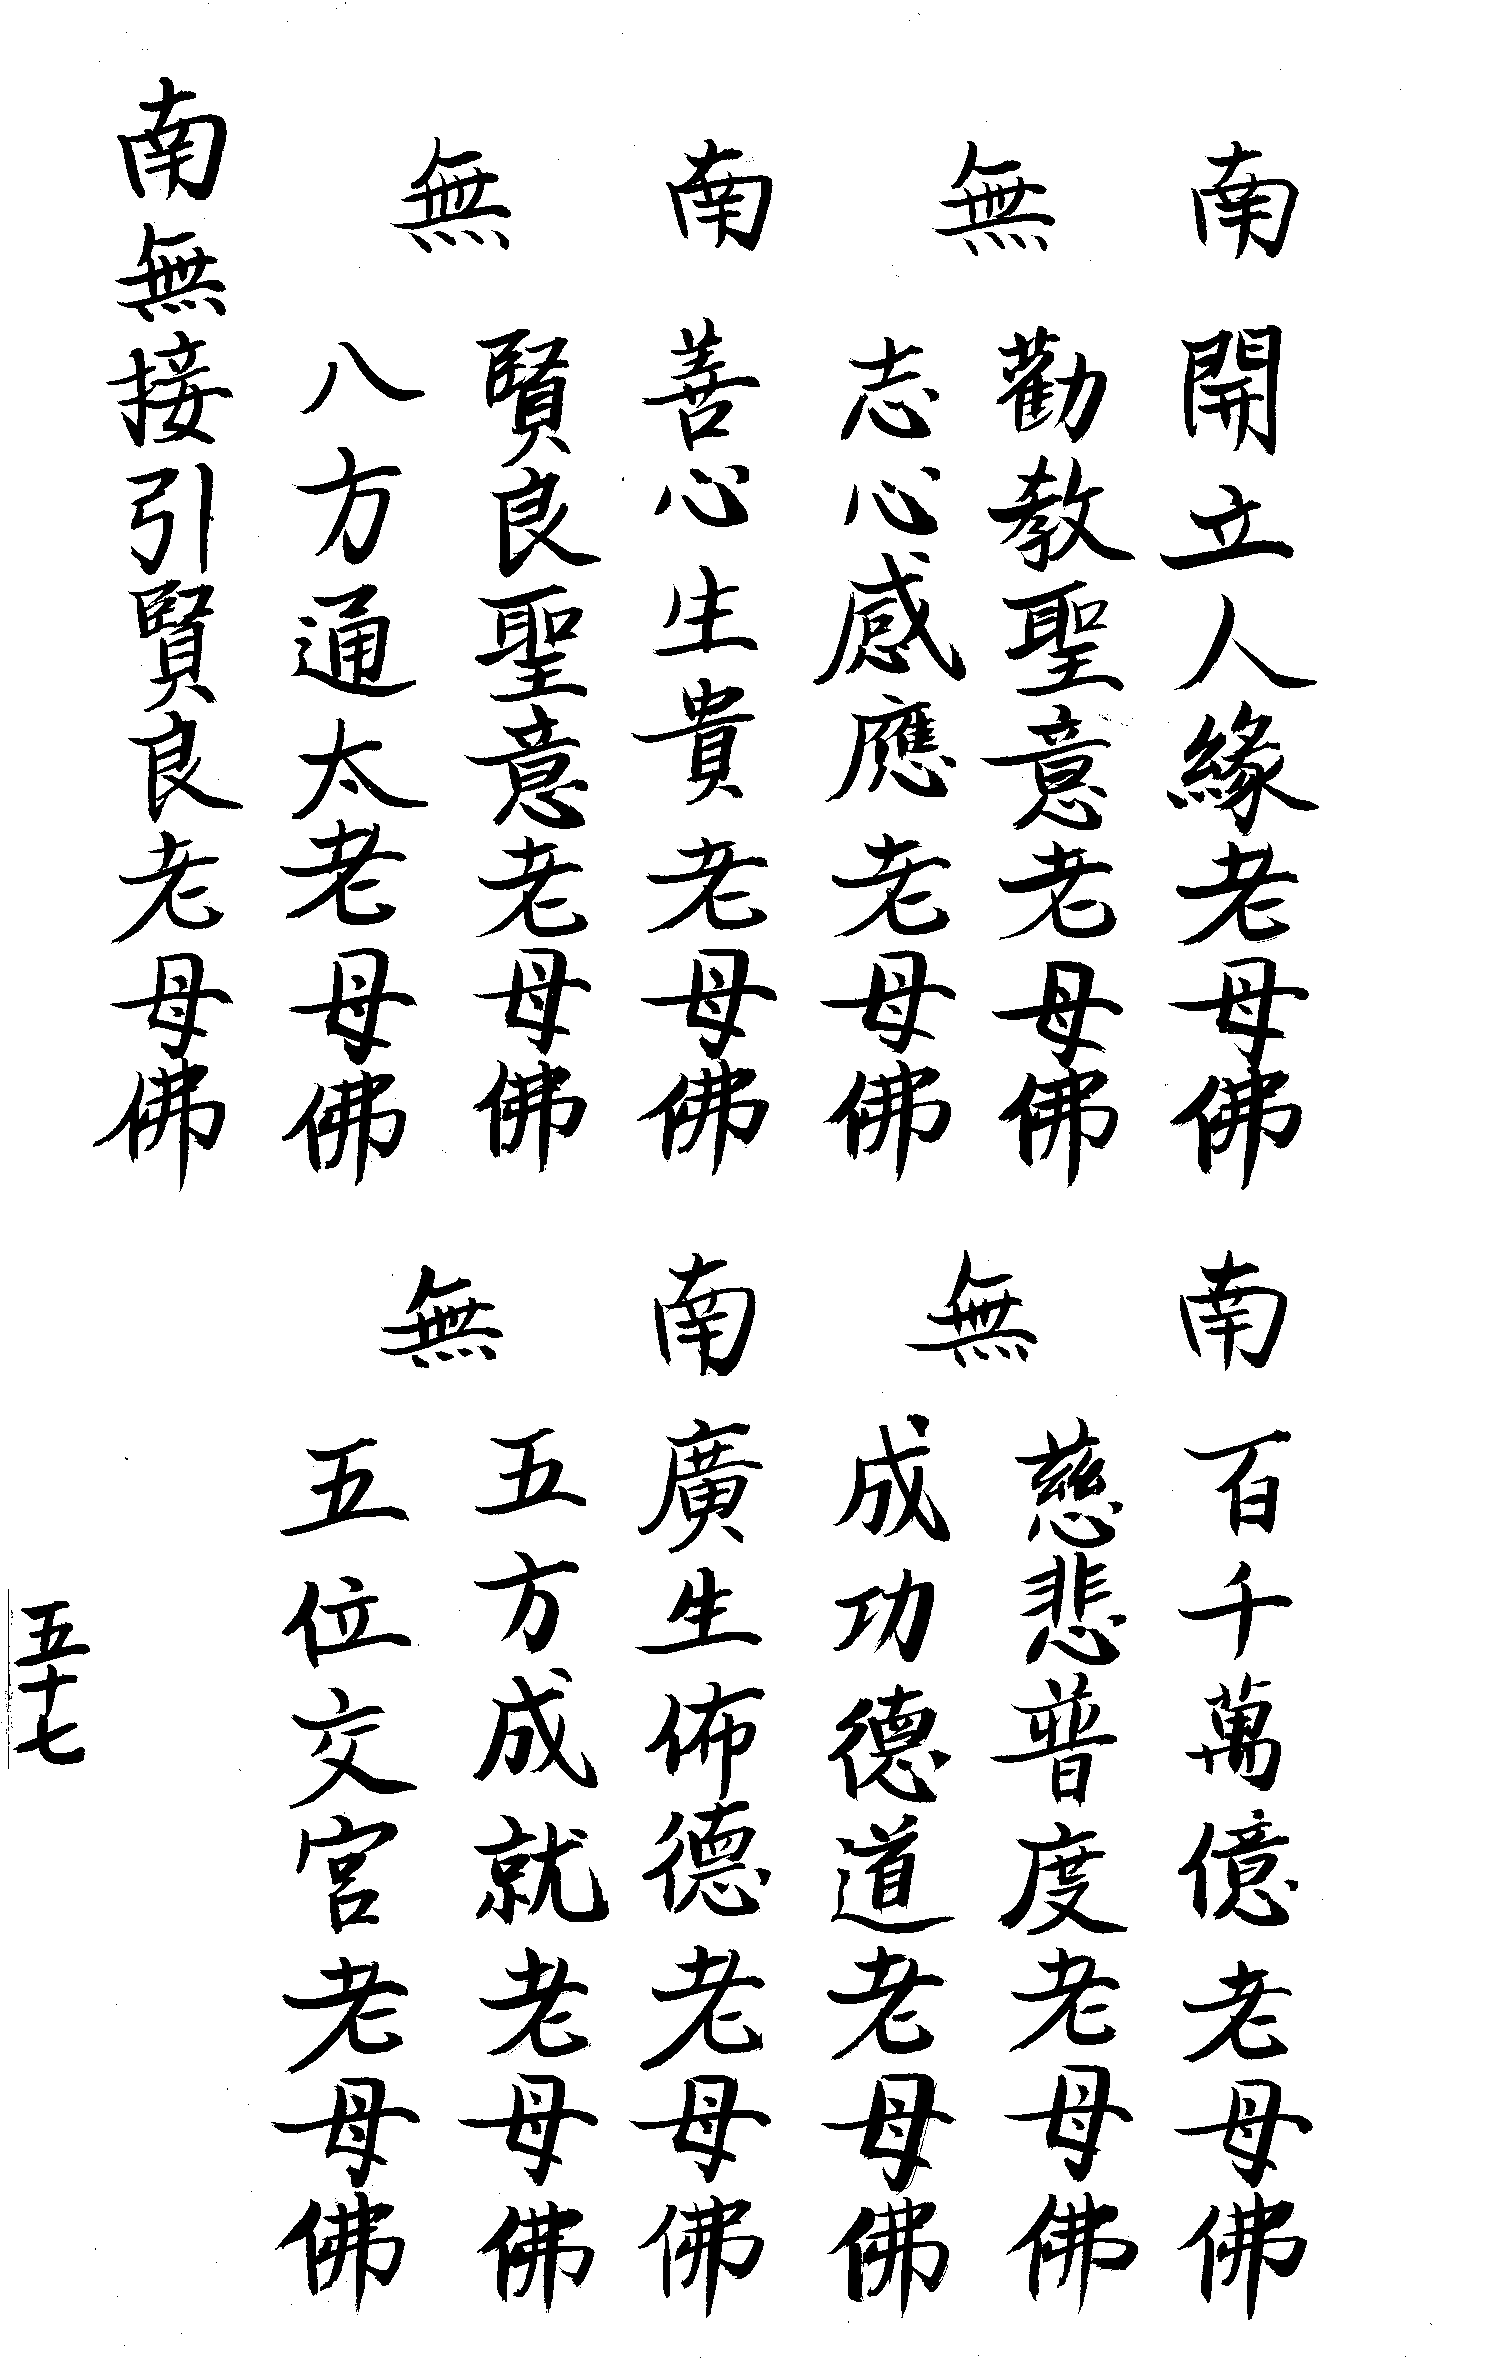 南　無　南　無
開立人緣老母佛
勸教聖意老母佛
志心感應老母佛
善心生貴老母佛
賢良聖意老母佛
八方通太老母佛
南無接引賢良老母佛
南　無　南　無
百千萬億老母佛
慈悲普度老母佛
成功德道老母佛
廣生佈德老母佛
五方成就老母佛
五位交宮老母佛
五十七